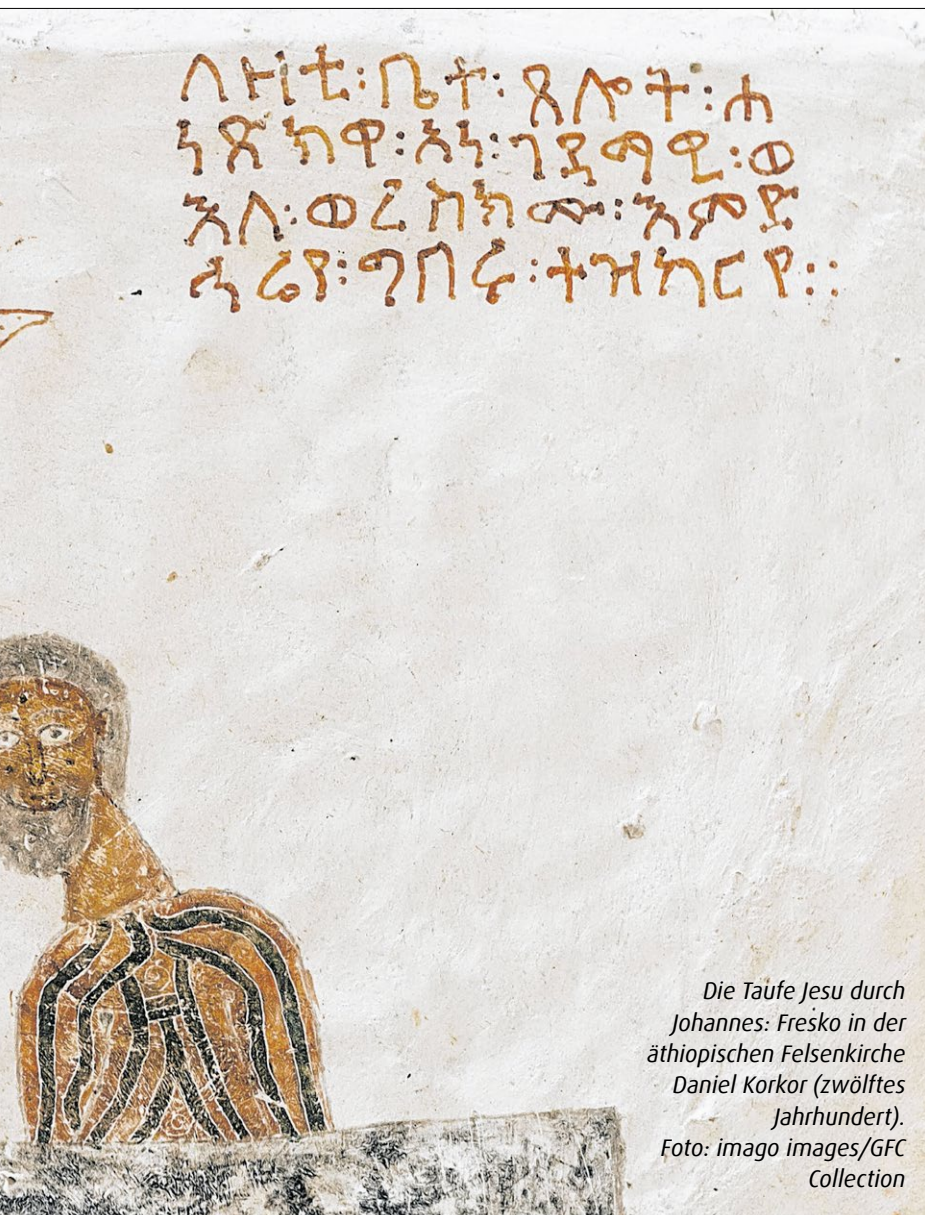 ለዛቲ፡ቤተ፡ጸሎት፡ሐ
ነጽክዋ፡አነ፡ገዳማዊ፡ወ
እለ፡ወረስክሙ፡እምድ
ሓሬየ፡ግበሩ፡ተዝካርየ፡፡
Die Taufe Jesu durch
Johannes: Fresko in der
äthiopischen Felsenkirche
Daniel Korkor (zwölftes
Jahrhundert).
Foto: imago images/GFC
Collection